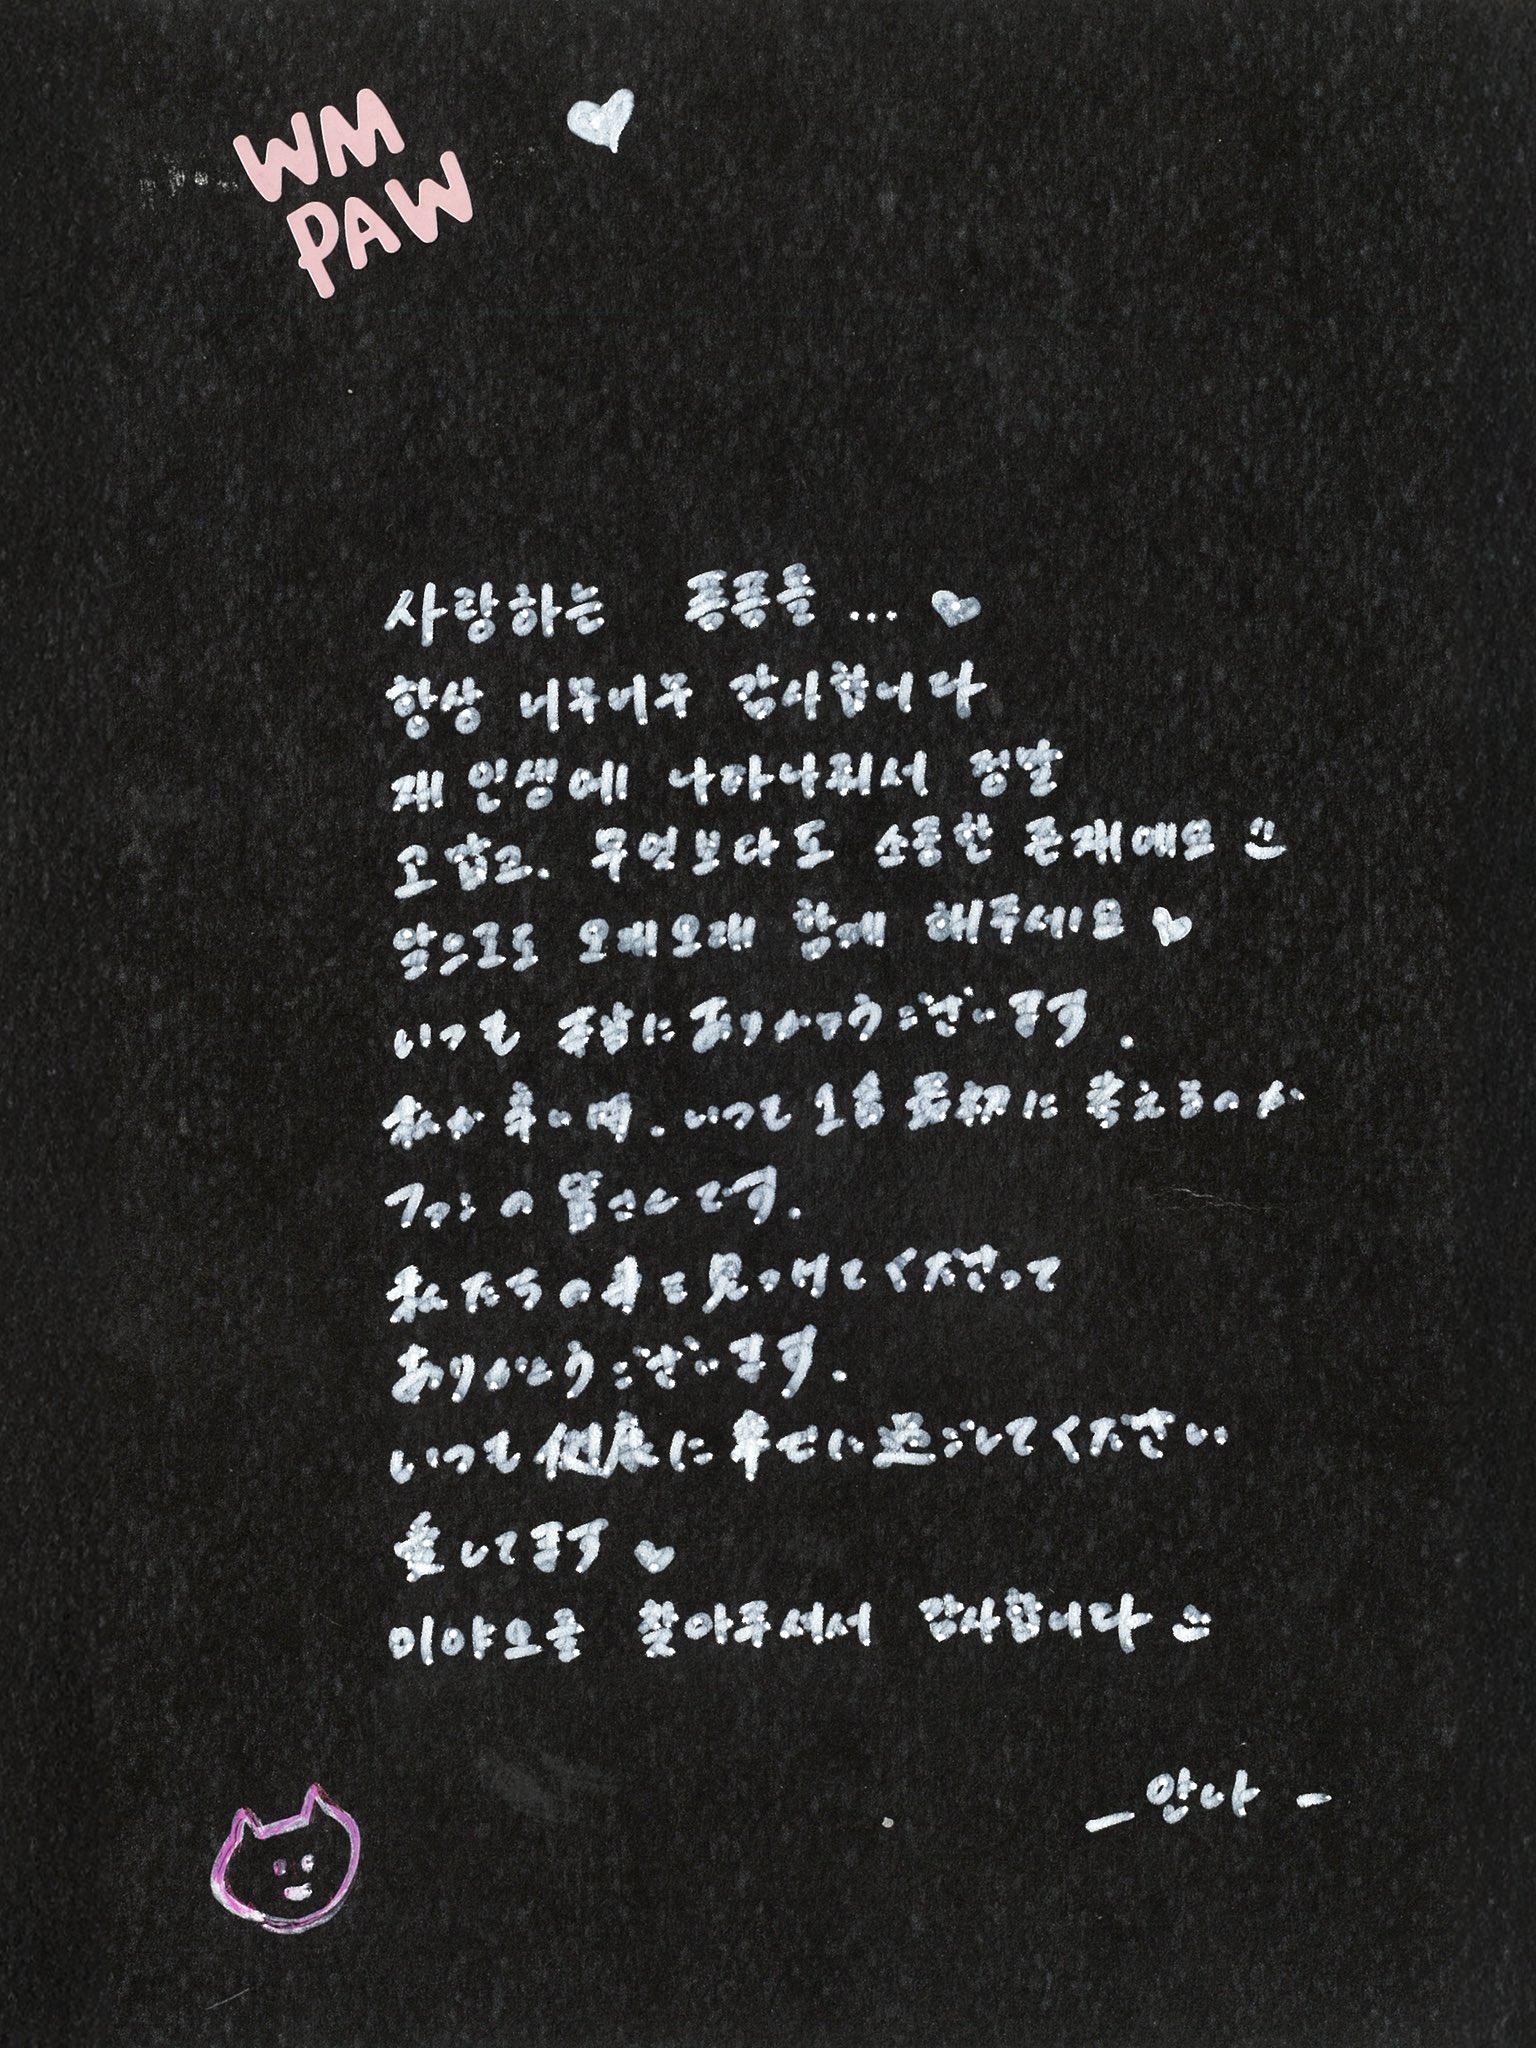 WM
PAW
사랑하는 퐁퐁들...
항상 너무너무 감사합니다
제 인생에 나타나줘서 정말
고맙고. 무엇보다도 소중한 존재에요
앞으로도 오래오래 함께 해주세요
いつも 本当に ありがとうございます.
私が辛い時. いつも 1番最初に 考えるのが
ファンの皆さんです.
私たちの事を見つけてくださって
ありがとうございます.
いつも健康に幸せに過ごしてください
愛してます
미야오를 찾아주셔서 감사합니다
- 안나 -